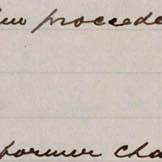 proceede
former cha